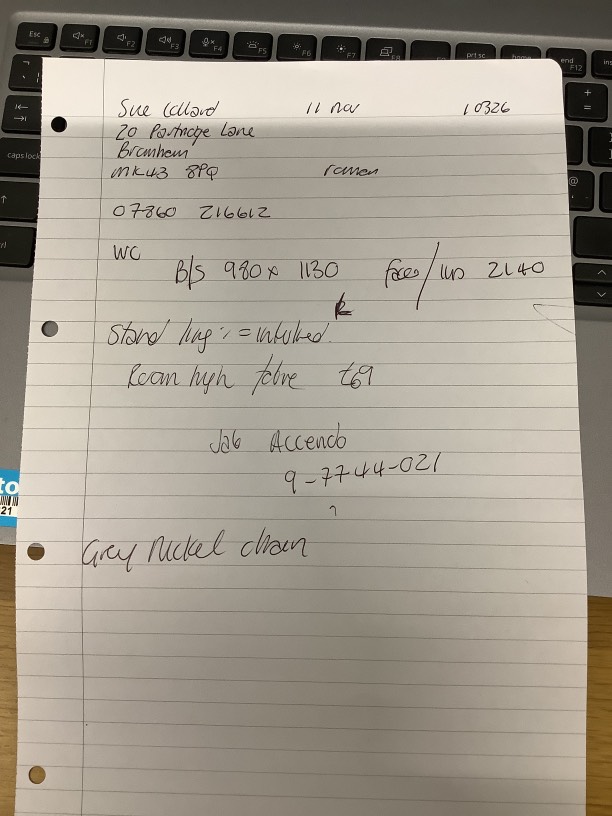 Sue 11 nov 10326
20 Partridge Lane
Bromham
MK43 8PQ roman
07860 216612
WC
B/S 980 x 1130 2140
Stand
Roman high t69
Jab Accendo
9-7744-021
?
Grey Nickel chain
Esc F1 F2 F3 F4 F5 F6 F7 F8 prt sc home end F12
caps lock
to
21